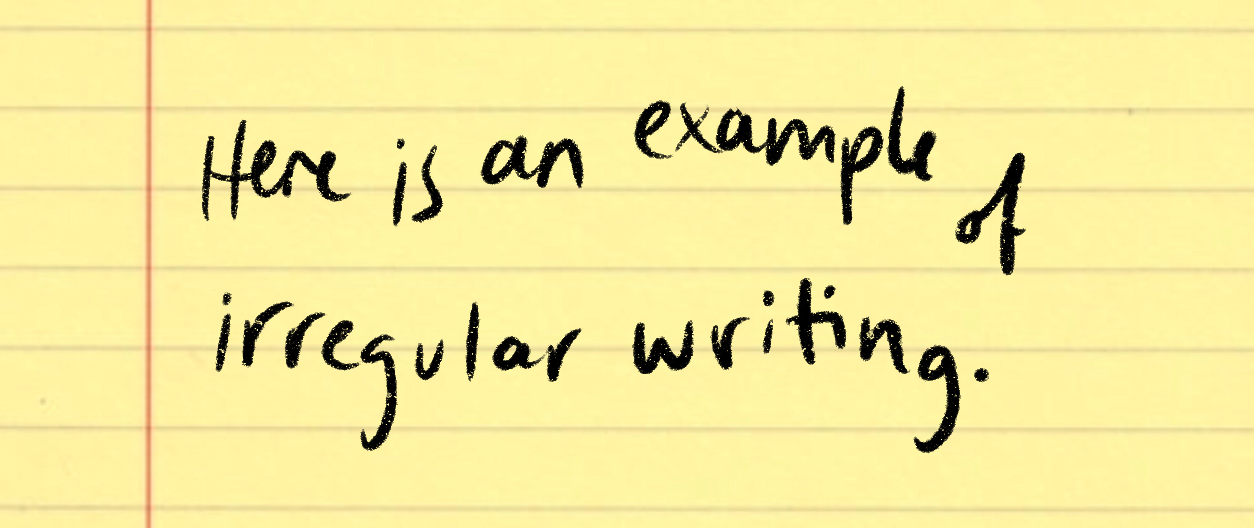 Here is an example of
irregular writing.